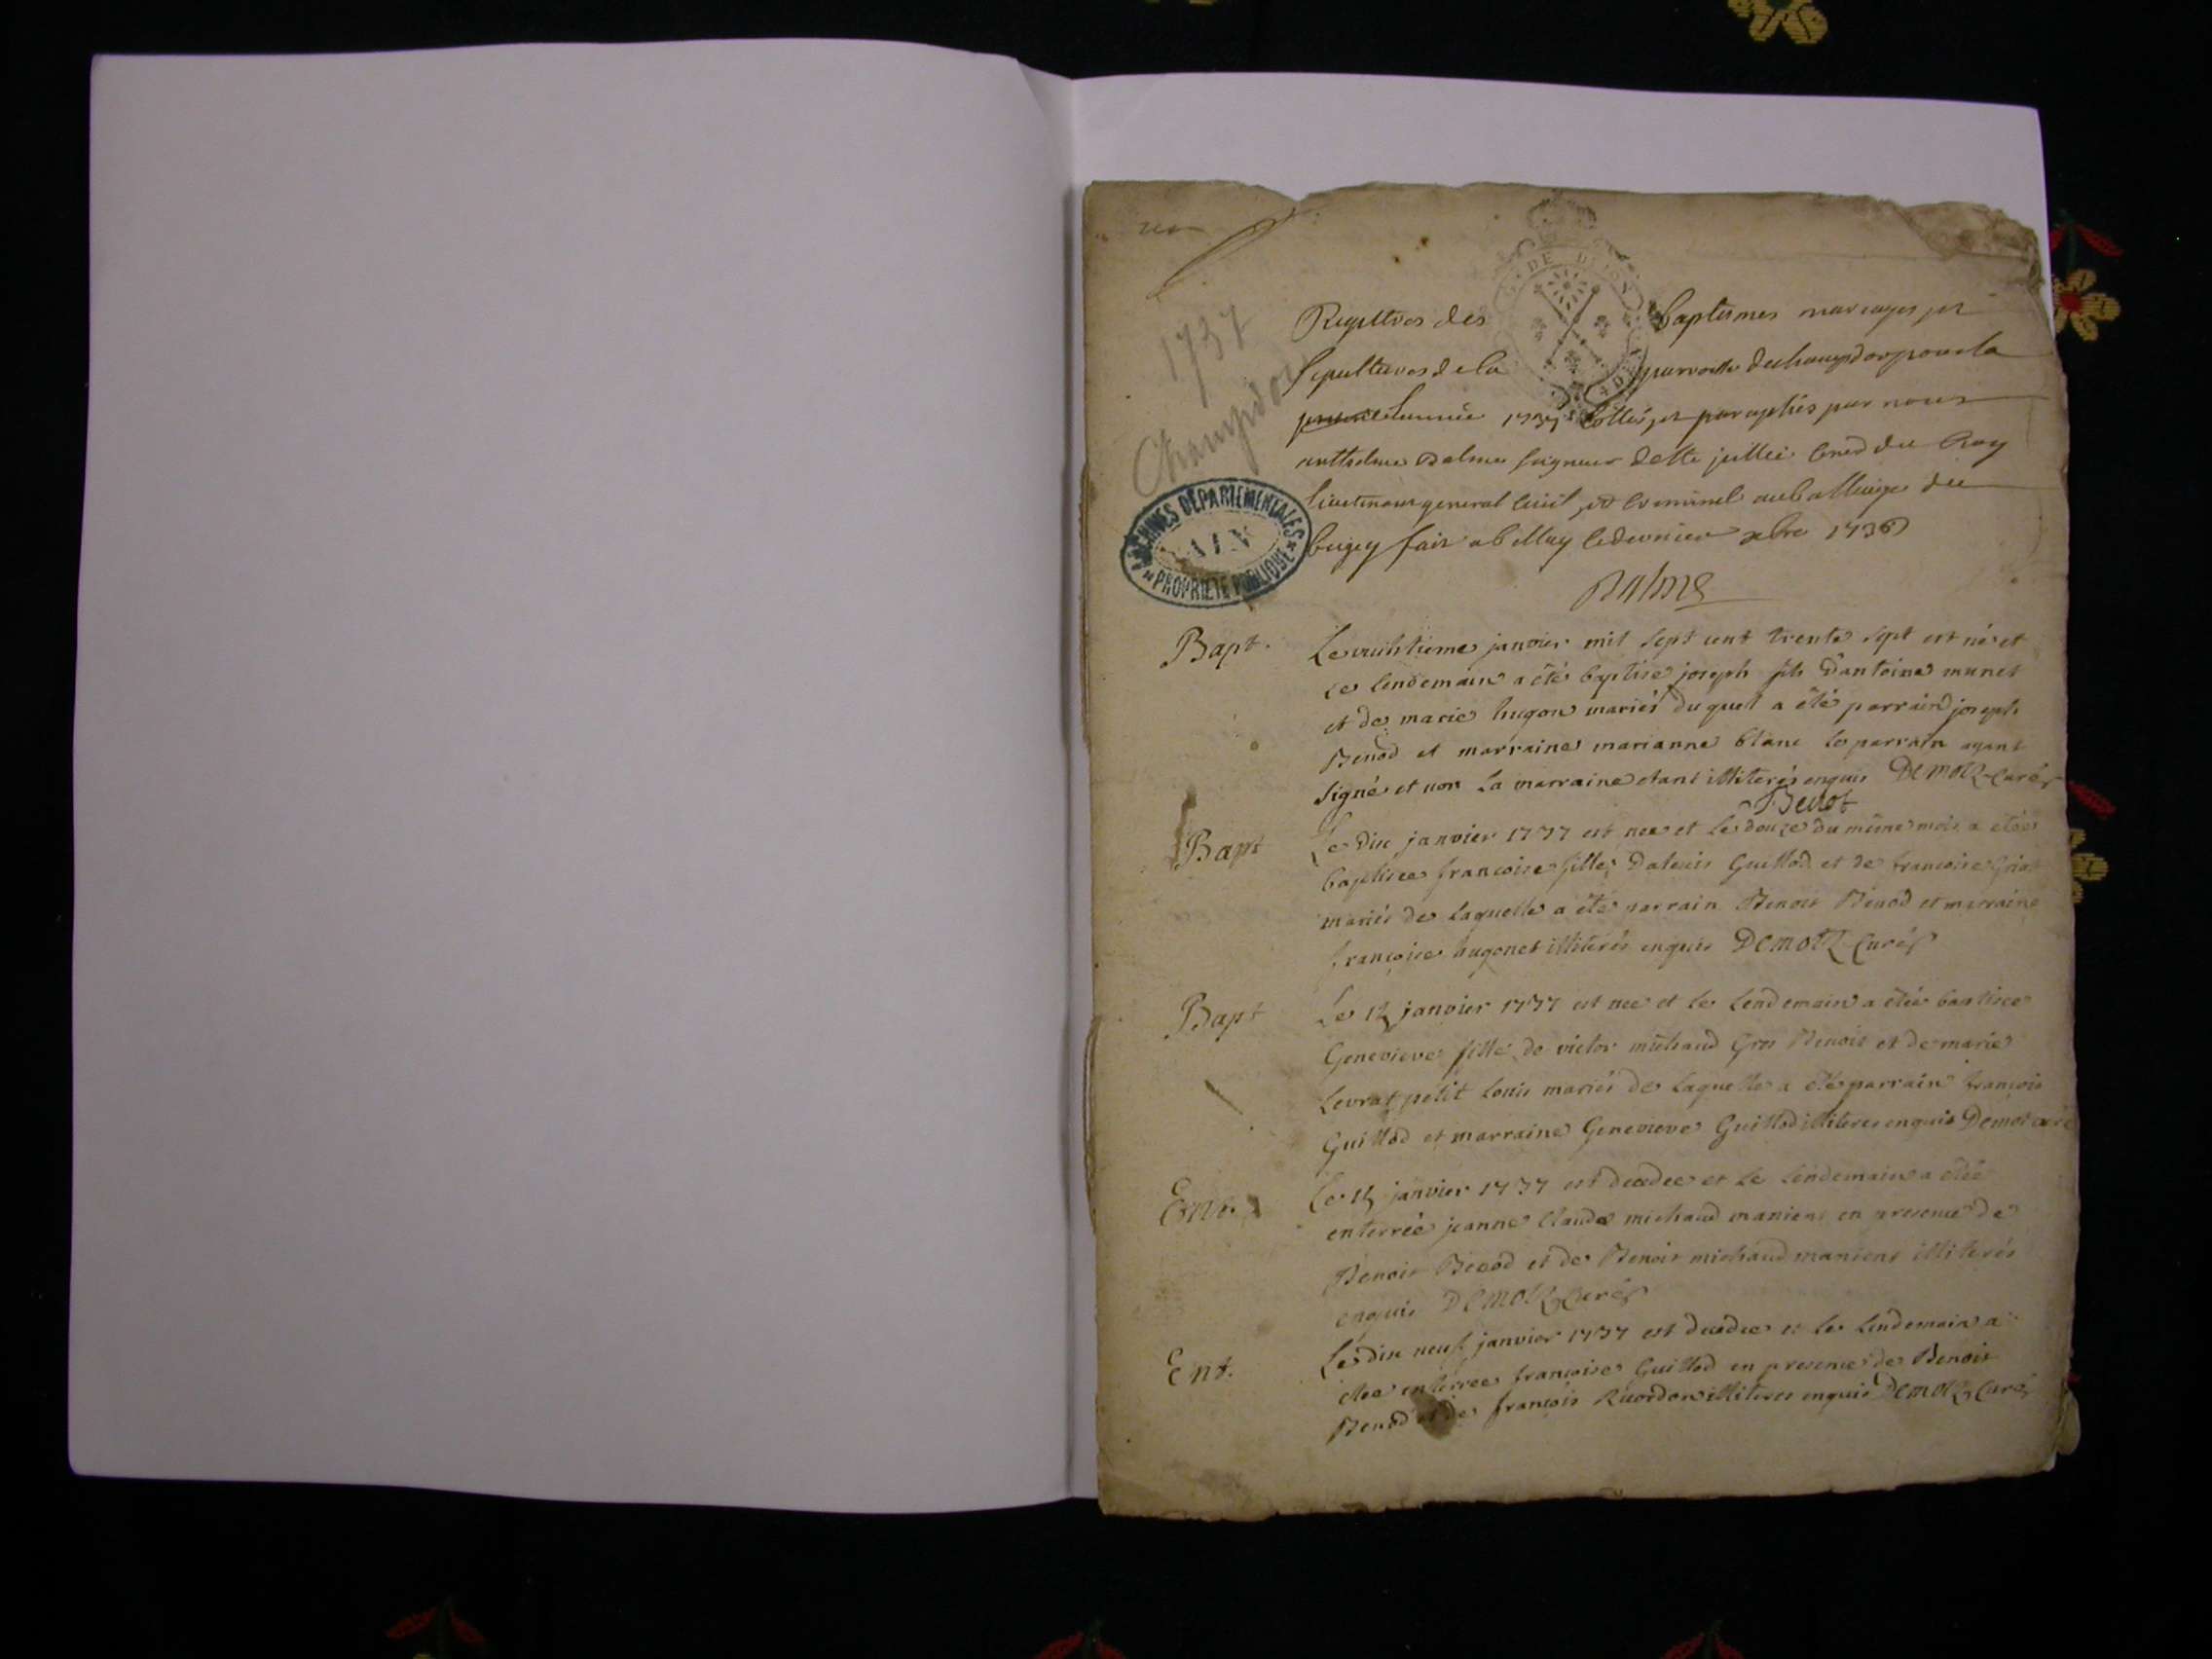 1737
Champdor
DE DIJON
Registres des baptesmes mariages et
sepultures de la parroisse de champdor pour la
lannée 1737 Cottés et paraphés par nous
anthelme Balme seigneur de Ste jullie Coner du Roy
lieutenant general Civil et Criminel au balliage du
bugey fait a belley le dernier xbre 1736
Balme
ARCHIVES DEPARTEMENTALES
AIN
PROPRIETE PUBLIQUE
Bapt. Le huihtieme janvier mil sept cent trente sept est né et
le lendemain a été baptisé joseph fils D'antoine munet
et de marie hugon mariés duquel a été parrain joseph
Benod et marraine marianne blanc le parrain ayant
signé et non la marraine etant illiterés enquis Demotz Curé
Benot
Bapt Le dix janvier 1737 est nee et le douze du même mois a étée
baptisee francoise fille Dalexis Guillod et de francoise
mariés de laquelle a été parrain Benoit Bénod et marraine
françoise hugonet illiterés enquis Demotz Curé
Bapt Le 15 janvier 1737 est nee et le lendemain a étée baptisee
Genevieve fille de victor michaud Gros Benoit et de marie
Levrat petit Louis mariés de laquelle a été parrain françois
Guillod et marraine Genevieve Guillod illiteres enquis Demotz curé
Ent. Le 15 janvier 1737 est decedee et le lendemain a étée
enterrée jeanne Claude michaud maniens en presence de
Benoit Benod et de Benoit michaud maniens illiterés
enquis Demotz Curé
Ent. Le dix neuf janvier 1737 est decedee et le lendemain a
étee enterree francoise Guillod en presence de Benoit
Benod et de françois Ruordon illiteres enquis Demotz Curé